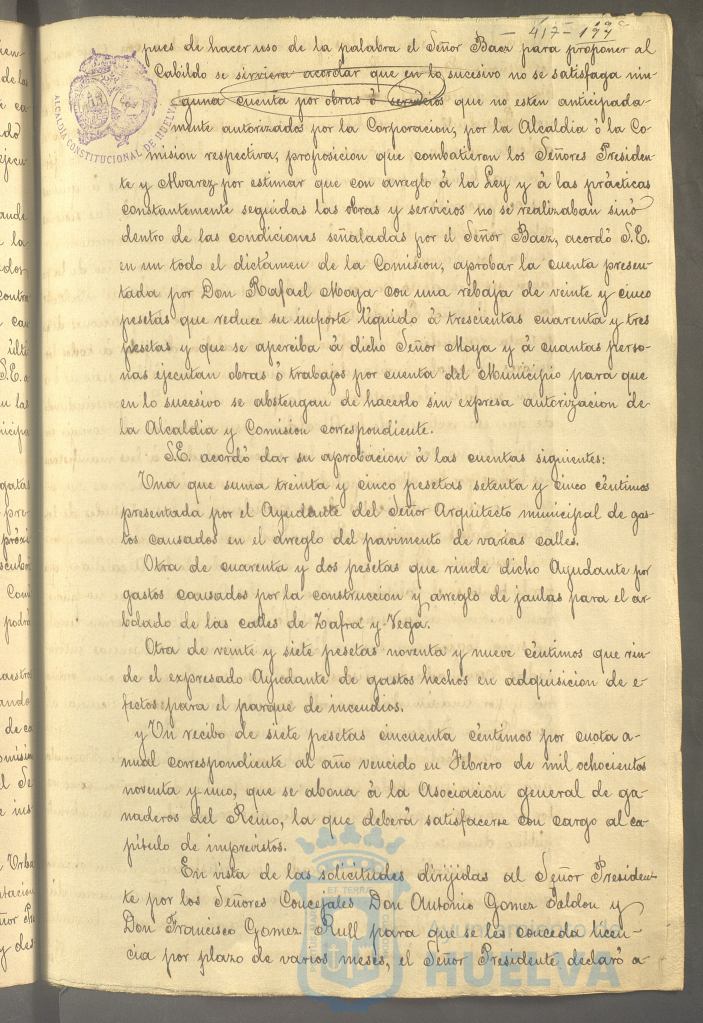 - 417 - 199
pues de hacer uso de la palabra el Señor Baez para proponer al
Cabildo se sirviera acordar que en lo sucesivo no se satisfaga nin-
guna cuenta por obras ó servicios que no esten anticipada-
mente autorizados por la Corporacion, por la Alcaldia ó la Co-
mision respectiva, proposicion que combatieron los Señores Presiden-
te y Alvarez por estimar que con arreglo á la Ley y á las prácticas
constantemente seguidas las obras y servicios no se realizaban sinó
dentro de las condiciones señaladas por el Señor Baez, acordó S.E.
en un todo el dictámen de la Comision, aprobar la cuenta presen-
tada por Don Rafael Moya con una rebaja de veinte y cinco
pesetas que reduce su importe líquido á trescientas cuarenta y tres
pesetas y que se aperciba á dicho Señor Moya y á cuantas perso-
nas ejecutan obras ó trabajos por cuenta del Municipio para que
en lo sucesivo se abstengan de hacerlo sin expresa autorizacion de
la Alcaldia y Comision correspondiente.
S.E. acordó dar su aprobacion á las cuentas siguientes:
Una que suma treinta y cinco pesetas setenta y cinco céntimos
presentada por el Ayudante del Señor Arquitecto municipal de gas-
tos causados en el arreglo del pavimento de varias calles.
Otra de cuarenta y dos pesetas que rinde dicho Ayudante por
gastos causados por la construccion y arreglo de jaulas para el ar-
bolado de las calles de Zafra y Vega.
Otra de veinte y siete pesetas noventa y nueve céntimos que rin-
de el expresado Ayudante de gastos hechos en adquisicion de e-
fectos para el parque de incendios.
y Un recibo de siete pesetas cincuenta céntimos por cuota a-
nual correspondiente al año vencido en Febrero de mil ochocientos
noventa y uno, que se abona á la Asociacion general de ga-
naderos del Reino, la que deberá satisfacerse con cargo al ca-
pítulo de imprevistos.
En vista de las solicitudes dirijidas al Señor Presiden-
te por los Señores Concejales Don Antonio Gomez Seldon y
Don Francisco Gomez Rull para que se les conceda licen-
cia por plazo de varios meses, el Señor Presidente declaró a-
ALCALDIA CONSTITUCIONAL DE HUELVA
Ayuntamiento de
HUELVA